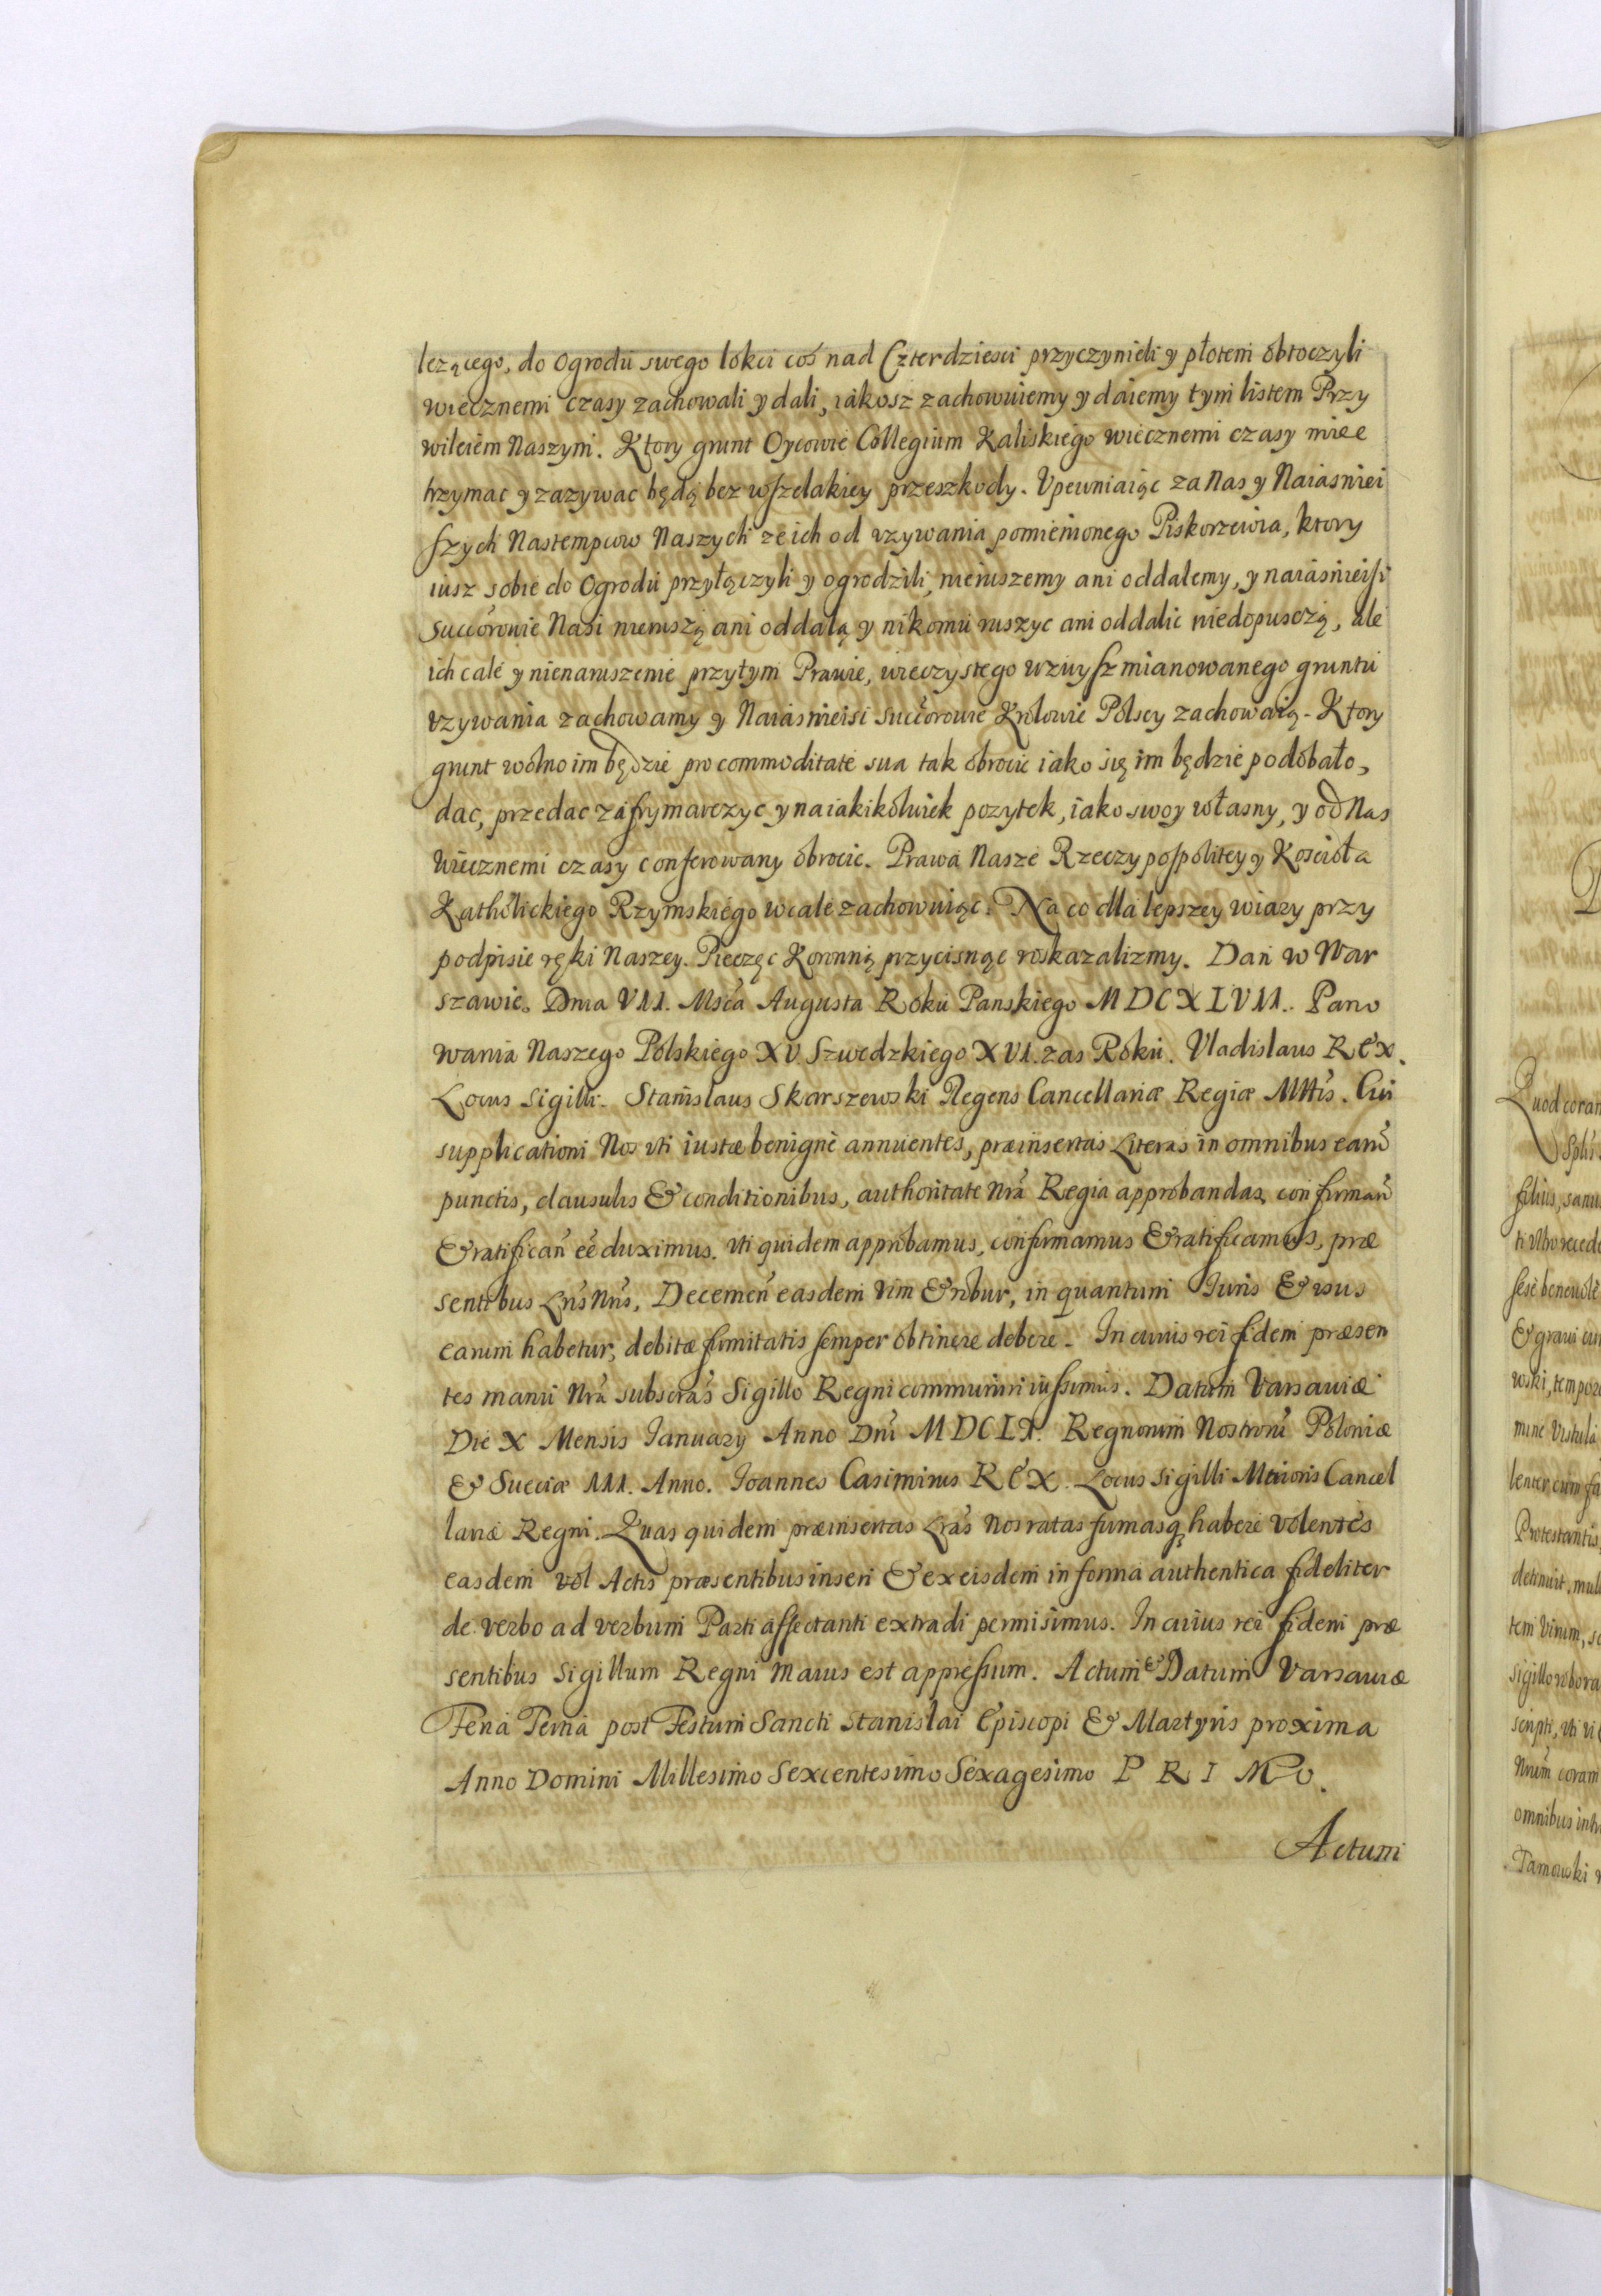 lezącego, do Ogrodu swego lokci coś nad Czterdziesci przyczynieli y płotem obtoczyli
wiecznemi czasy zachowali y dali, iakosz zachowuiemy y daiemy tym listem Przy
wileiem Naszym. Ktory grunt Oycowie Collegium Kaliskiego wiecznemi czasy miec
trzymac y zazywac będą bez wszelakiey przeszkody. Upewniaiąc za Nas y Naiasniei
szych Nastempcow Naszych ze ich od vzywania pomienionego Piskorzewia, ktory
iusz sobie do Ogrodu przyłączyli y ogrodzili, nieruszemy ani oddalemy, y naiasnieisi
Succorowie Nasi nieruszą ani oddalą y nikomu ruszyc ani oddalic niedopusczą, ale
ich cale y nienaruszenie przytym Prawie, wieczystego wzwysz mianowanego gruntu
vzywania zachowamy y Naiasnieisi succorowie Krolowie Polscy zachowaią. Ktory
grunt wolno im będzie pro commoditate sua tak obrocic iako się im będzie podobało,
dac, przedac zafrymarczyc y na iakikolwiek pozytek, iako swoy własny, y od Nas
wiecznemi czasy conferowany obrocic. Prawa Nasze Rzeczypospolitey y Koscioła
Katholickiego Rzymskiego wcale zachowuiąc. Na co dla lepszey wiary przy
podpisie ręki Naszey. Pieczęc Koronną przycisnąc roskazalizmy. Dan w War
szawie. Dnia VII. Msca Augusta Roku Panskiego MDCXLVII. Pano
wania Naszego Polskiego XV Szwedzkiego XVI. zas Roku. Vladislaus REX.
Locus Sigilli. Stanislaus Skarszewski Regens Cancellariæ Regiæ Mttis. Cui
supplicationi Nos vti iustæ benignè annuentes, præinsertas Literas in omnibus earũ
punctis, clausulis & conditionibus, authoritate Nrã Regia approbandas, confirmañ
& ratificañ eẽ duximus. vti quidem approbamus, confirmamus & ratificamus, præ
sentibus Lrĩs Nrĩs, Decerneñ easdem vim & robur, in quantum Iuris & vsus
earum habetur, debitæ firmitatis semper obtinere debere. In cuius rei fidem præsen
tes manu Nrã subscrãs Sigillo Regni communiri iussimus. Datum Varsauiæ
Die X Mensis Ianuary Anno Dnĩ MDCLI. Regnorum Nostrorũ Poloniæ
& Sueciæ III. Anno. Ioannes Casimirus REX. Locus Sigilli Maioris Cancel
lariæ Regni. Quas quidem præinsertas Lrãs Nos ratas firmasq; habere volentes
easdem vol Actis præsentibus inseri & ex eisdem in forma authentica fideliter
de verbo ad verbum Parti affectanti extradi permisimus. In cuius rei fidem præ
sentibus Sigillum Regni Maius est appressum. Actum & Datum Varsauiæ
Feria Tertia post Festum Sancti Stanislai Episcopi & Martyris proxima
Anno Domini Millesimo Sexcentesimo Sexagesimo PRIMO.
Actum